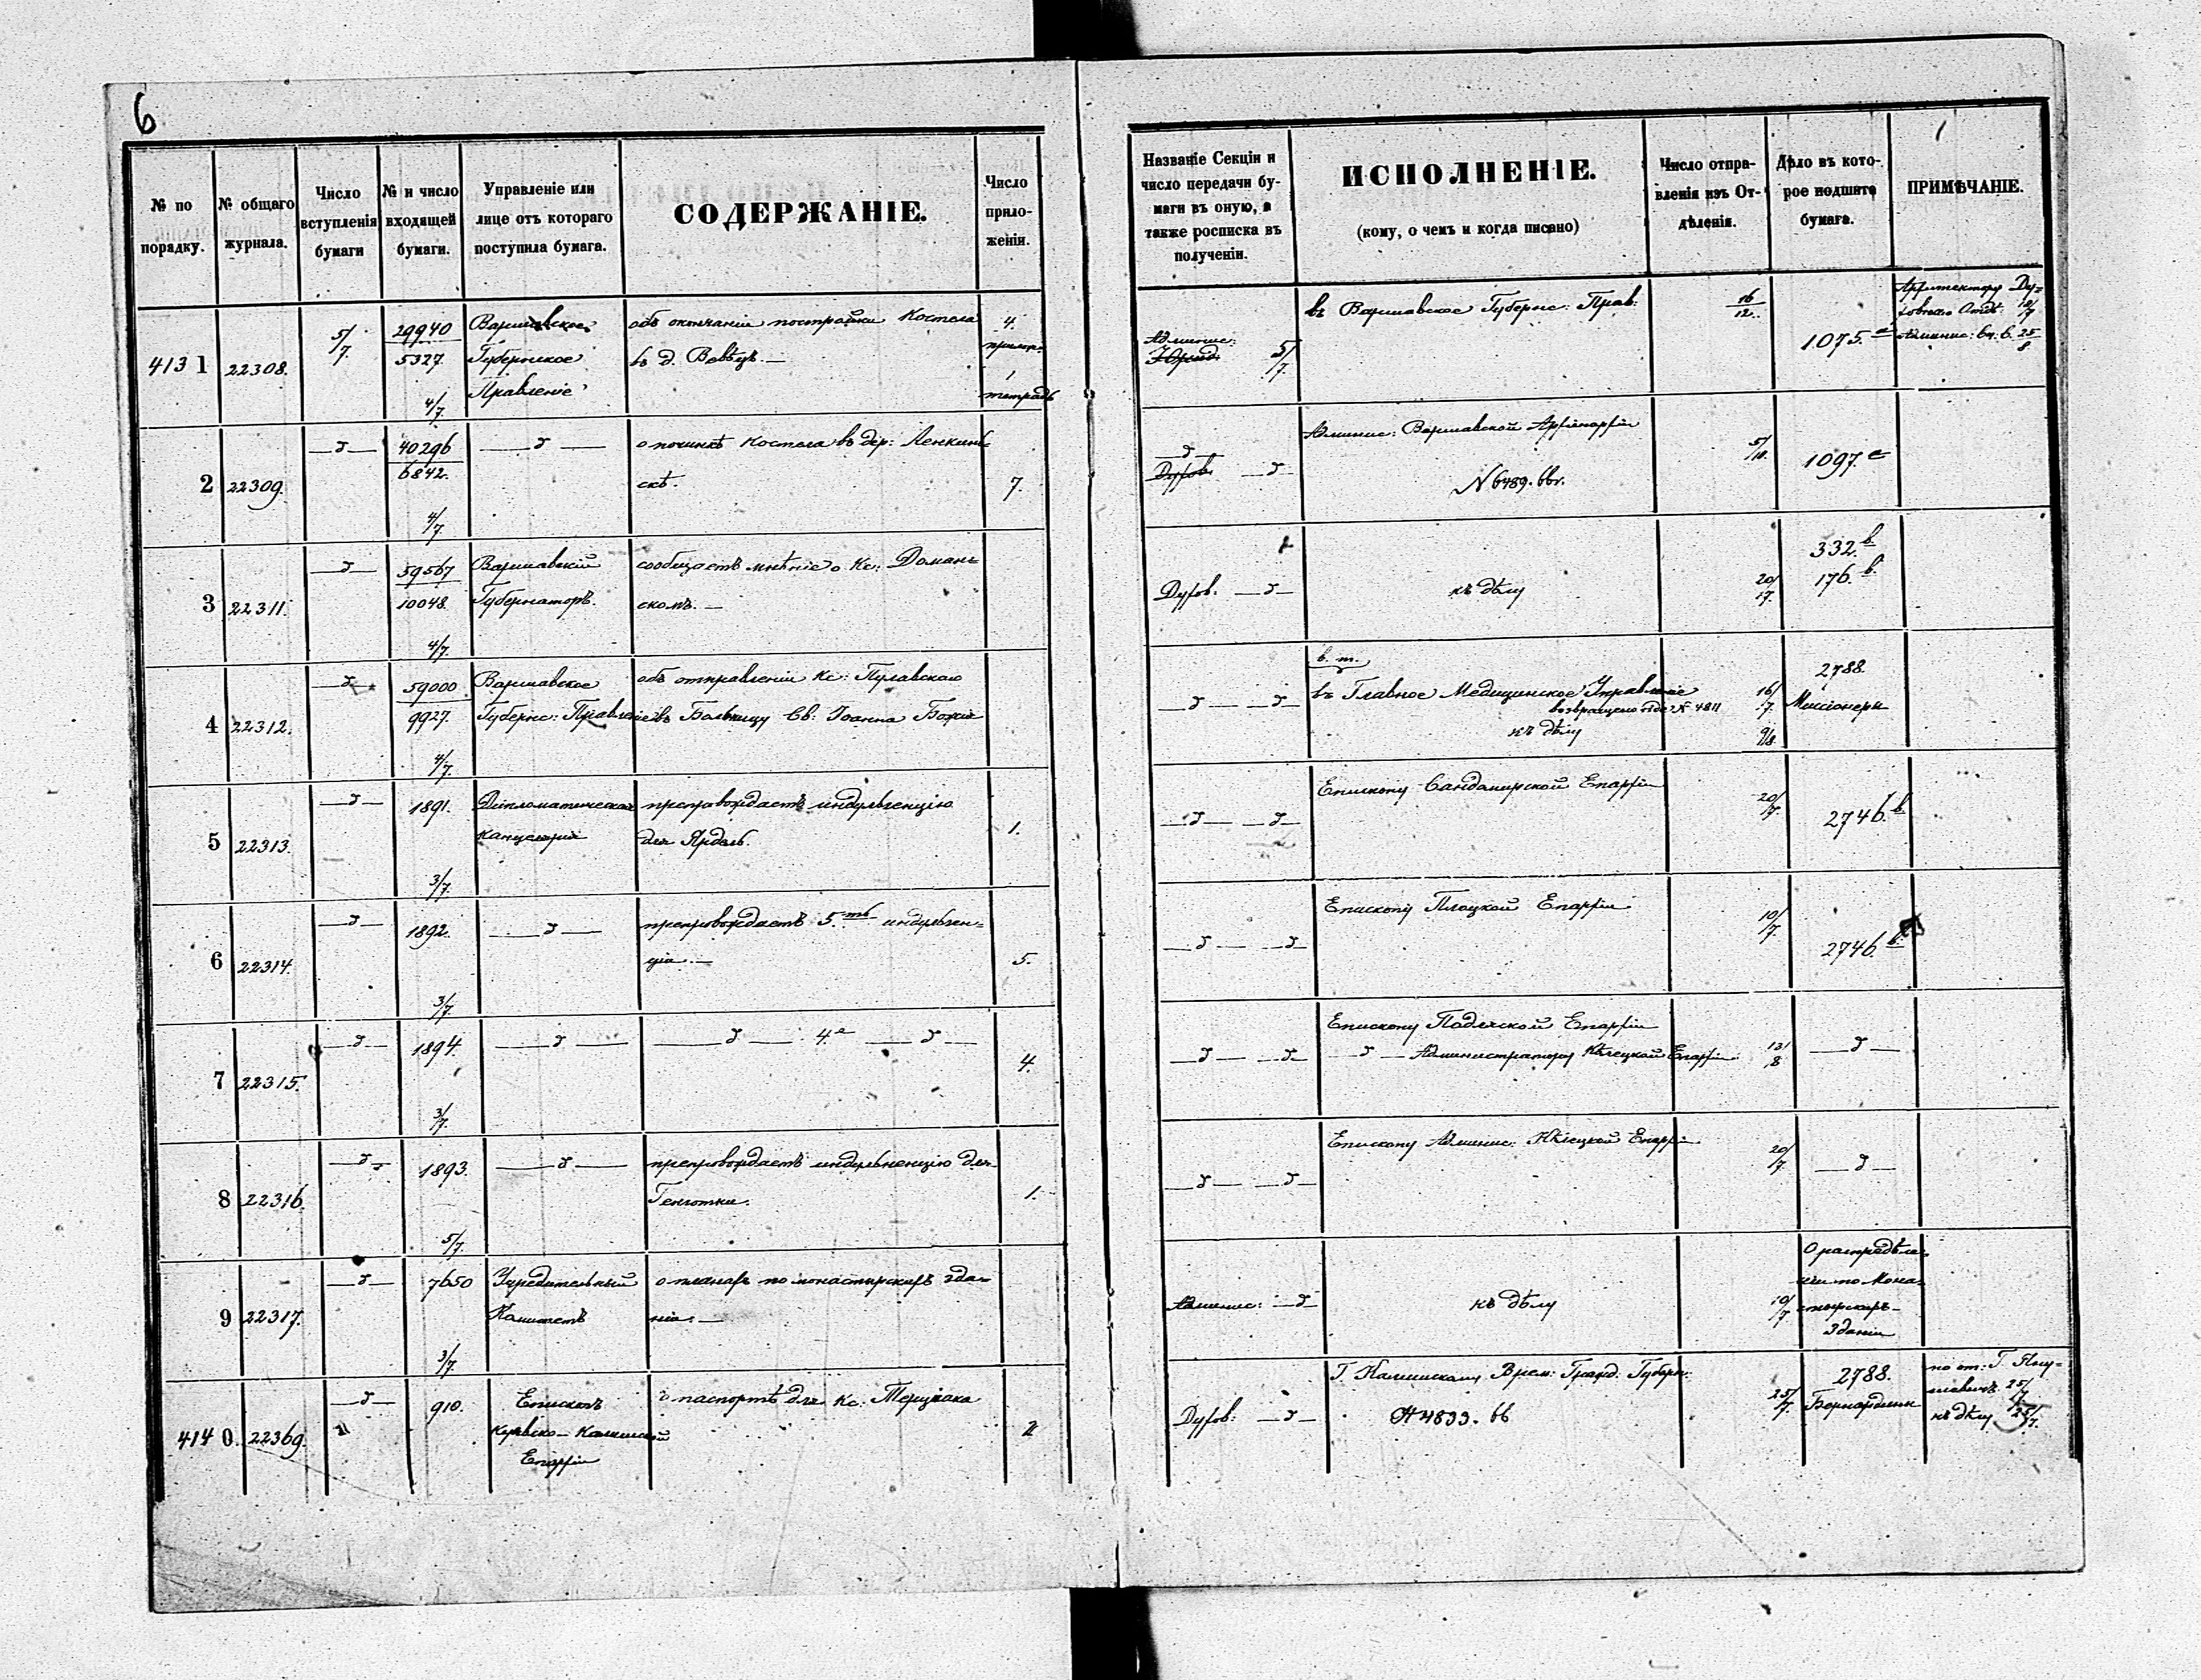 6
№ по порядку.
№ общаго журнала.
Число вступленія бумаги
№ и число входящей бумаги.
Управленіе или лице отъ котораго поступила бумага.
СОДЕРЖАНІЕ.
Число приложеній.
Названіе Секціи и число передачи бумаги въ оную, а также росписка въ полученіи.
ИСПОЛНЕНІЕ.
(кому, о чемъ и когда писано)
Число отправленія изъ Отдѣленія.
Дѣло въ которое подшита бумага.
ПРИМѢЧАНІЕ.
4131 22308. 5/7. 29940 5327. 4/7. Варшавское Губернское Правленіе
объ окончаніи постройки Костела
въ д.
4. прилож. 1 тетрадь
Админис: 5/7.
въ Варшавское Губернс: Прав:
16/12. 1075.
Архитектору Ду-
Админис: 25/8
2 22309. —д— 40296 6842. 4/7. —д—
о починкѣ Костела въ дер:
скѣ.
7.
—д— —д—
Админис: Варшавской Архіепархіи
№ 6489.
5/10. 1097.
3 22311. —д— 59567 10048. 4/7. Варшавскій Губернаторъ.
сообщаетъ мнѣніе о Кс: Доман-
скомъ. —
Духов. —д—
къ дѣлу
20/17. 332. в. 176. в.
4 22312. —д— 59000 9927. 4/7. Варшавское Губернс: Правленіе
объ отправленіи Кс: Пулавскаго
въ Больницу Св: Іоанна Божія
—д— —д—
в. т.
въ Главное Медицинское Управленіе
возвращено № 4811
къ дѣлу
16/7. 9/8. 2788. Миссіонеры
5 22313. —д— 1891. 3/7. Дипломатическая Канцелярія
препровождаетъ индульгенцію
для
1.
—д— —д—
Епископу Сандомирской Епархіи
20/7. 2746. в
6 22314. —д— 1892. 3/7. —д—
препровождаетъ 5.ть индульген-
ціи. —
5.
—д— —д—
Епископу Плоцкой Епархіи
10/7. 2746. в.
7 22315. —д— 1894. 3/7. —д—
—д— 4. —д—
4.
—д— —д—
Епископу Подляской Епархіи
—д— Администратору Кѣлецкой Епархіи
13/8 —д—
8 22316. —д— 1893. 5/7. —д—
препровождаетъ индульгенцію для
1.
—д— —д—
Епископу Админис: Кѣлецкой Епархіи
20/7. —д—
9 22317. —д— 7650 3/7. Учредительный Комитетъ
о планахъ по монастырскихъ зда-
ніи. —
Админис: —д—
къ дѣлу
10/7
О распредѣле-
ніи по Мона-
стырскихъ
Зданіи
4140. 22369. —д— 910. Епископъ Куявско-Калишской Епархіи
о паспортѣ для Кс:
2
Духов: —д—
Г. Калишскому Врем: Гражд. Губерн:
№ 4833.
25/7. 2788. Бернардини
по от: Г.
25/7
къ дѣлу 25/7.